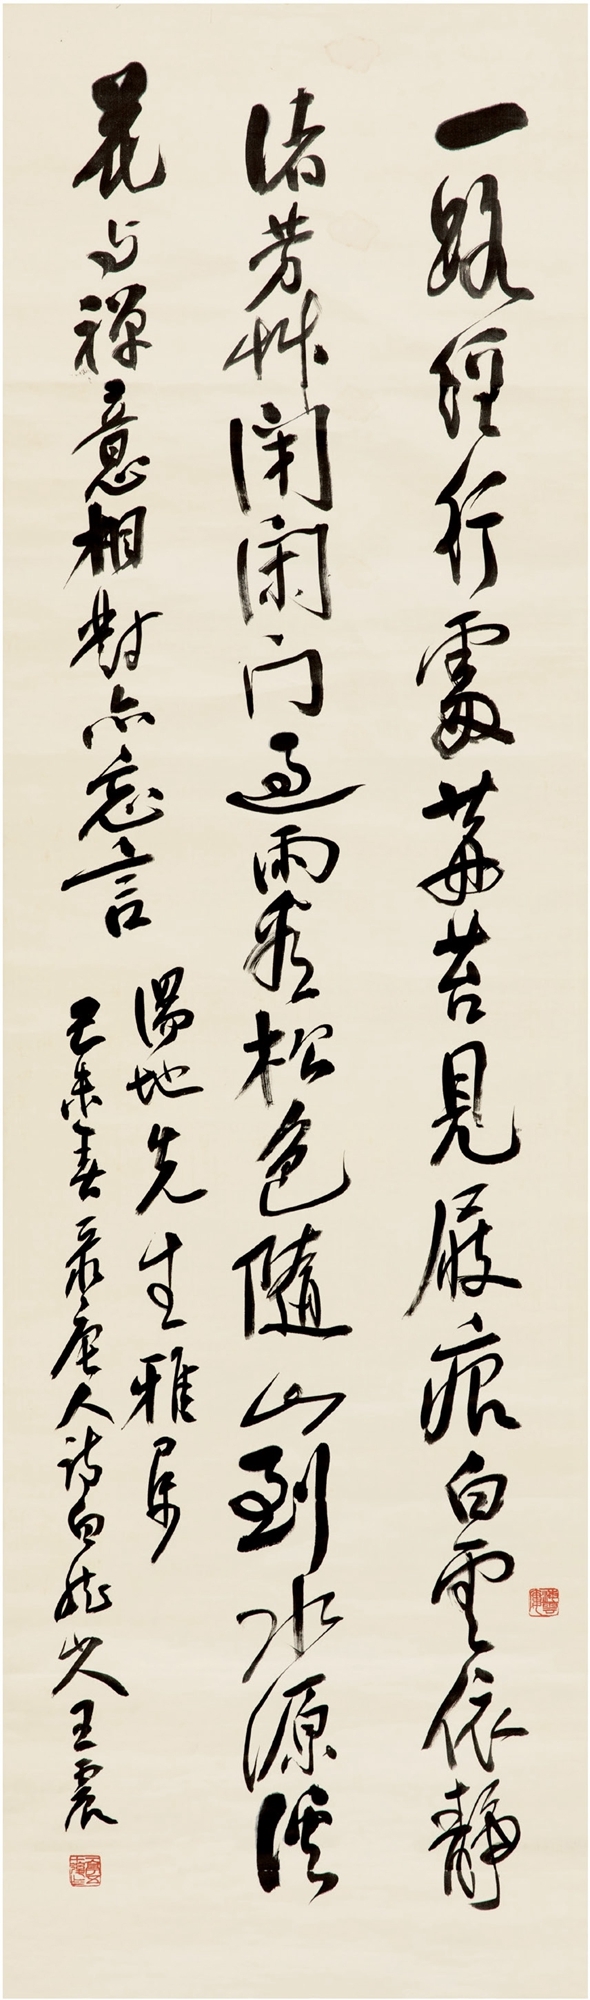 一路經行處莓苔見屐痕白雲依靜
渚芳艸閉閑門過雨看松色隨山到水源溪
花与禪意相對亦忘言
湯地先生雅屬
己未春录唐人詩白龍山人王震